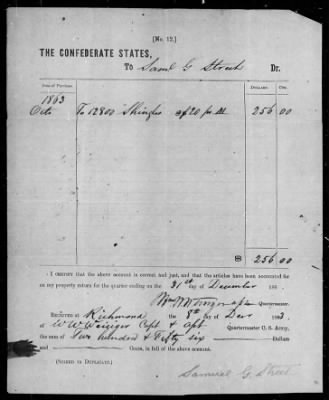 [No. 12.]
THE CONFEDERATE STATES,
To Saml G Street Dr.
Date of Purchase. Dollars. Cts.
1863
Octo To 12800 Shingles @ 20 per M 256 00
256 00
I certify that the above account is correct and just, and that the articles have been accounted for
on my property return for the quarter ending on the 31st day of December 186
Quartermaster.
Received at Richmond the 8th day of Decr 1863.
of W W Capt & Quartermaster C. S. Army,
the sum of Two hundred & Fifty six Dollars
and Cents, in full of the above account.
(Signed in Duplicate.)
Samuel G. Street